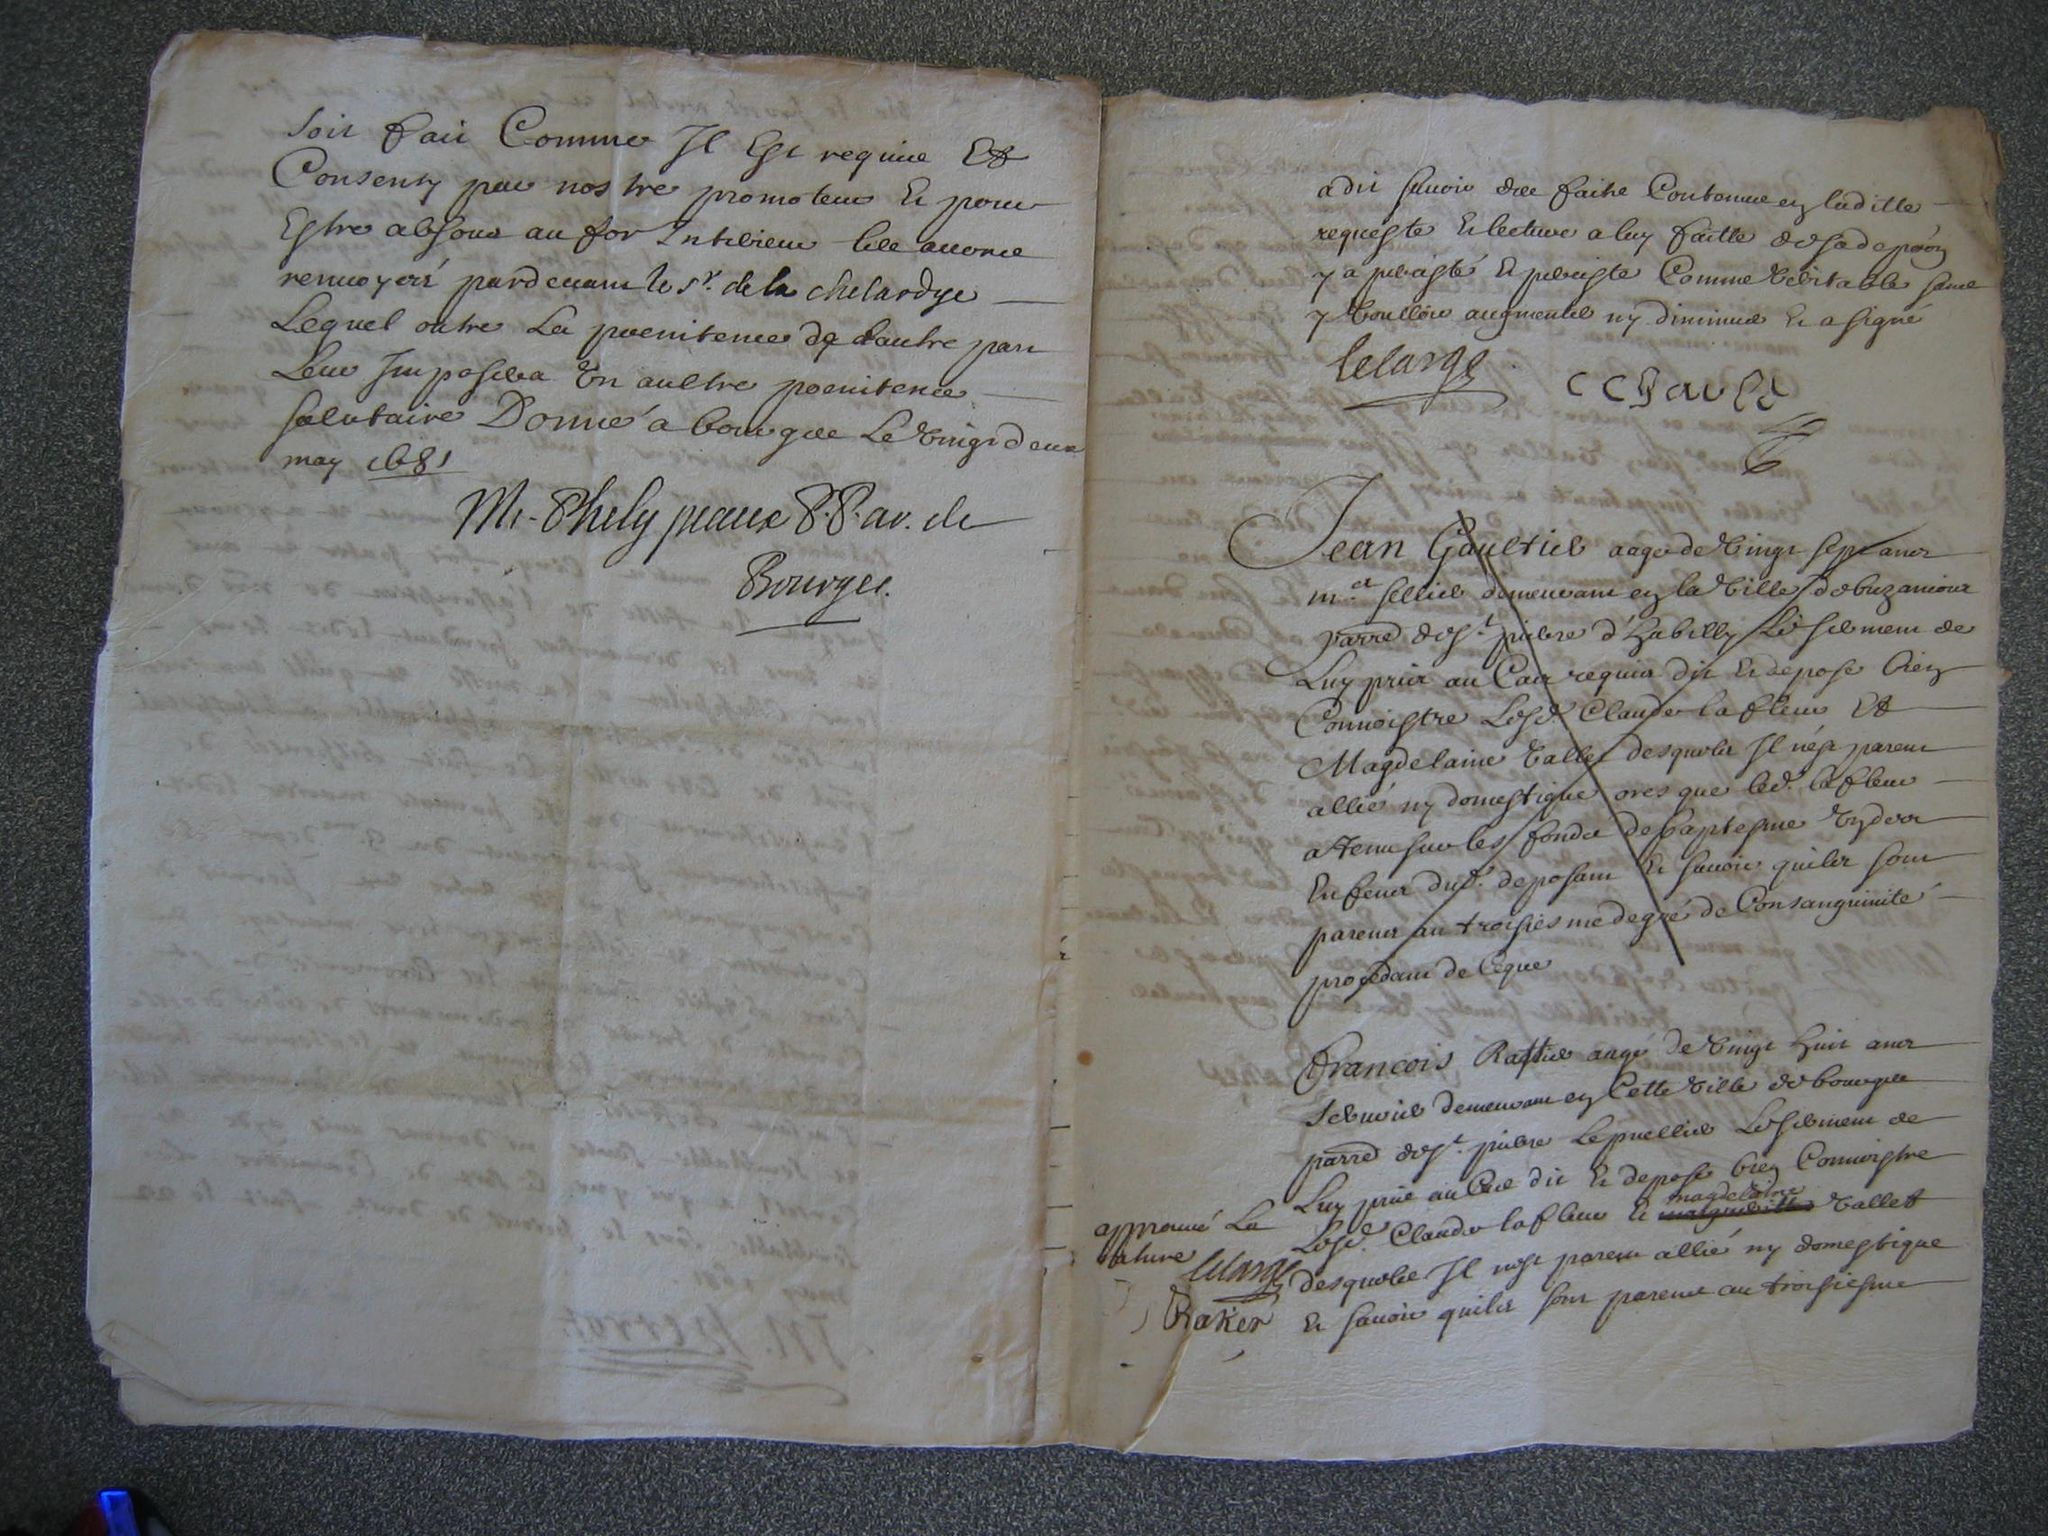 Soit fait Comme Il Est requis Et
Consenty par nostre promoteur Et pour
Estre absous au for Interieur les auons
renuoyés pardeuant le Sr. de la chetardye
Lequel outre La poenitence de lautre part
Leur Imposera Vn aultre poenitence
salutaire Donné a bourges Le Vingt deux
may 1681
M. Phelypeaux P. P. ar. de
Bourges.
a dit sauoir des faits Contenus en laditte
requeste Et lecture a luy faitte de sa depôon
y a persisté Et persiste Comme Veritable sans
y Voulloir augmenter ny diminuer Et a signé
lelarge
Jean Gaultier aagé de Vingt sept ans
me. sellier demeurant en la Ville de buzancois
parre de St. pierre d'habilly Le serment de
Luy pris au Cas requis dit Et depose bien
Connoistre Lesd. Claude lafleur Et
Magdelaine Vallet desquels Il nest parent
allié ny domestique ores que led. lafleur
a tenu sur les fonds de baptesme Vn des
Enfens dud. deposant Et sauoir quils sont
parens au troisiesme degré de Consanguinité
procedant de Ceque
Francois Ratier aagé de Vingt huit ans
demeurant en Cette Ville de bourges
parre de St. pierre Le puellier Le serment de
Luy pris au Cas dit Et depose bien Connoistre
Lesd. Claude lafleur Et magdelaine Vallet
desquels Il nest parent allié ny domestique
Et sauoir quils sont parens au troisiesme
approuué La
rature
lelarge